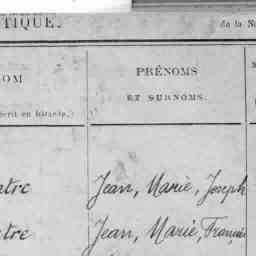 TIQUE. de la N
OM PRÉNOMS
ET SURNOMS.
crit en bâtarde.)
tre Jean, Marie, Joseph
tre Jean, Marie, François